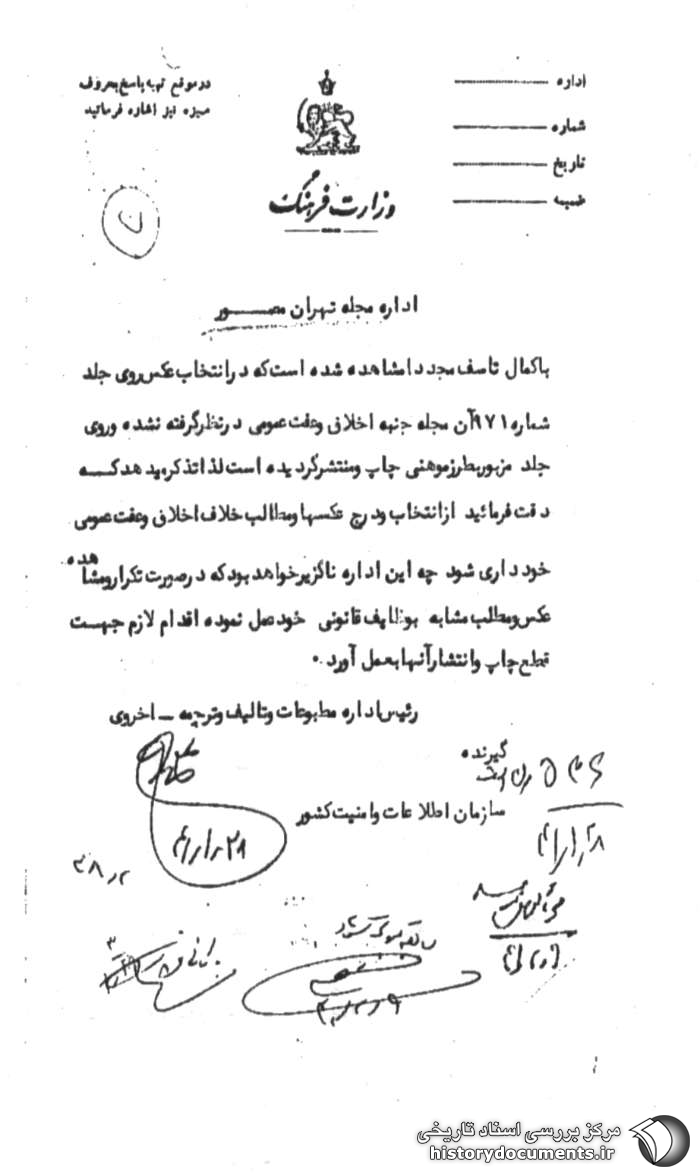 اداره
شماره
تاریخ
ضمیمه
در موقع تهیه پاسخ بحروف
میزه نیز اشاره فرمائید
ن
وزارت فرهنگ
اداره مجله تهران مصور
باکمال تاسف مجددا مشاهده شده است که در انتخاب عکس روی جلد
شماره ۹۷۱ آن مجله جنبه اخلاقی وعفت عمومی در نظر گرفته نشده و روی
جلد مزبور بطرز موهنی چاپ ومنتشر گردیده است لذا تذکر میدهد که
دقت فرمائید از انتخاب ودرج عکسها ومطالب خلاف اخلاق وعفت عمومی
خود داری شود چه این اداره ناگزیر خواهد بود که در صورت تکرار ومشاهده
عکس ومطلب مشابه بوظایف قانونی خود عمل نموده اقدام لازم جهت
قطع چاپ وانتشار آنها بعمل آورد.
رئیس اداره مطبوعات وتالیف وترجمه - اخروی
گیرنده
سازمان اطلاعات وامنیت کشور
مرکز بررسی اسناد تاریخی
historydocuments.ir